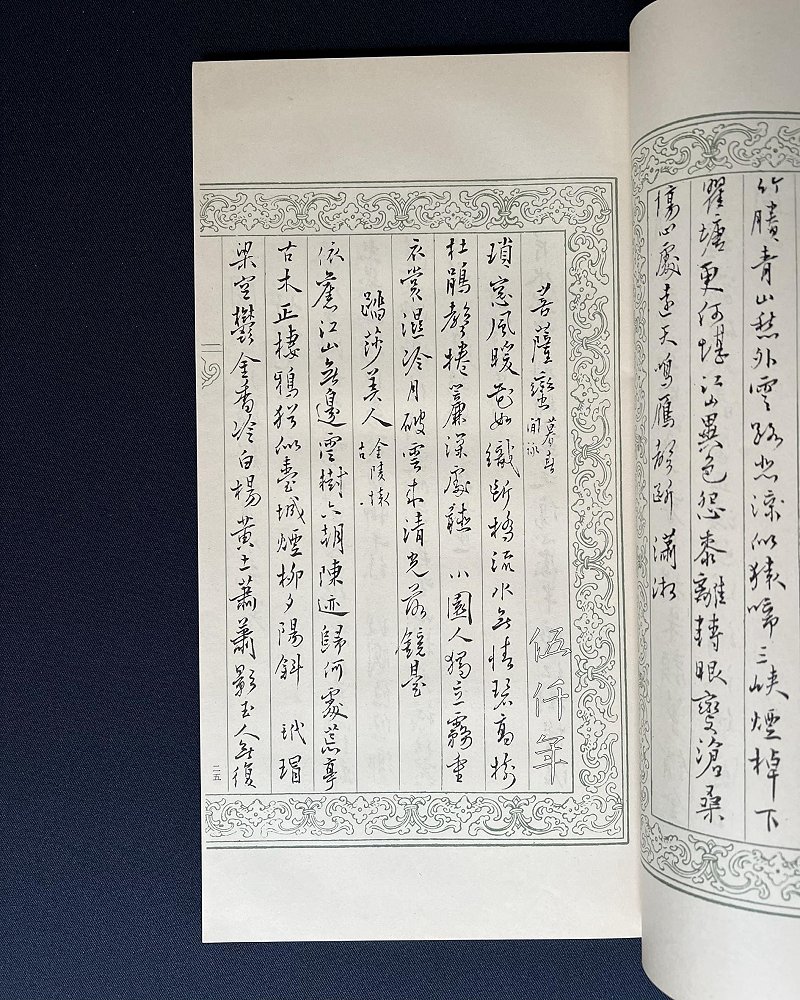 竹牘青山愁外雲路悲涼似猿啼三峽煙棹下
瞿塘更何堪江山異色怨黍離轉眼變滄桑
傷心處遠天鳴雁聲斷 瀟湘
菩薩蠻 暮春閒詠
瑣窗風暖花如織斷橋流水無情碧高樹
杜鵑聲捲簾深處聽 小園人獨立霧重
衣裳濕冷月破雲來清光落鏡臺
踏莎美人 金陵懷古
依舊江山無邊雲樹六朝陳迹歸何處荒亭
古木正棲鴉猶似臺城煙柳夕陽斜 玳瑁
梁空鬱金香冷白楊黃土蕭蕭影玉人無復
二五
伍仟年